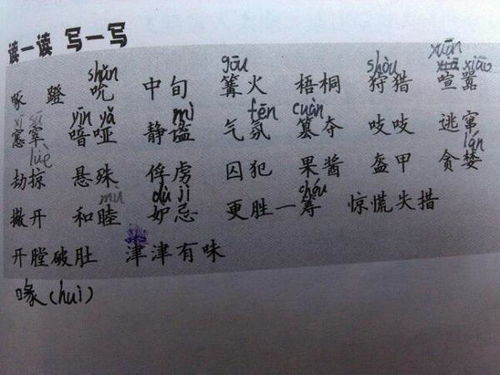 读一读 写一写
shǔn gōu shòu xuān xiāo
啄 蹬 吮 中旬 篝火 梧桐 狩猎 喧嚣
xī sū yīn yǎ mì fēn cuàn
窸窣 喑哑 静谧 气氛 篡夺 吱吱 逃窜
lüè lán
劫掠 悬殊 俘虏 囚犯 果酱 盔甲 贪婪
mù dù jì chóu
撇开 和睦 妒忌 更胜一筹 惊慌失措
开膛破肚 津津有味
喙(huì)